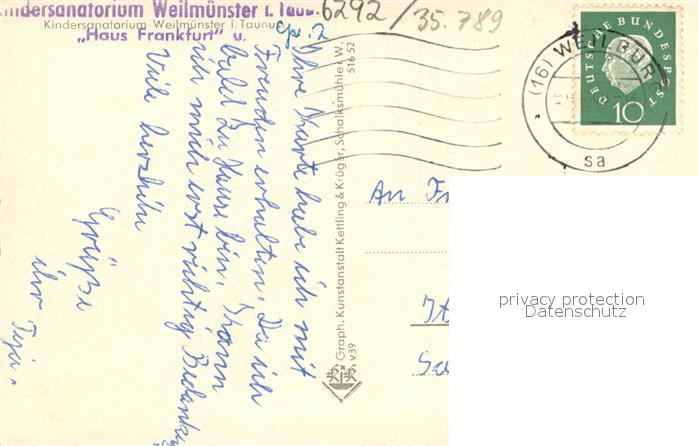 Kindersanatorium Weilmünster i. Taun.
Kindersanatorium Weilmünster i. Taunus
„Haus Frankfurt" u.
6292/35.789
Ihre Karte habe ich mit
Freuden erhalten. Da ich
bald zu Hause bin. Kann
ich mich erst richtig Bedanken
Viele herzliche
Grüße
ihr
Graph. Kunstanstalt Kettling & Krüger, Schalksmühle/W.
516 52
K v39
KüK
(16) WEILBURG
sa
DEUTSCHE BUNDESPOST
10
An Fr
privacy protection
Datenschutz